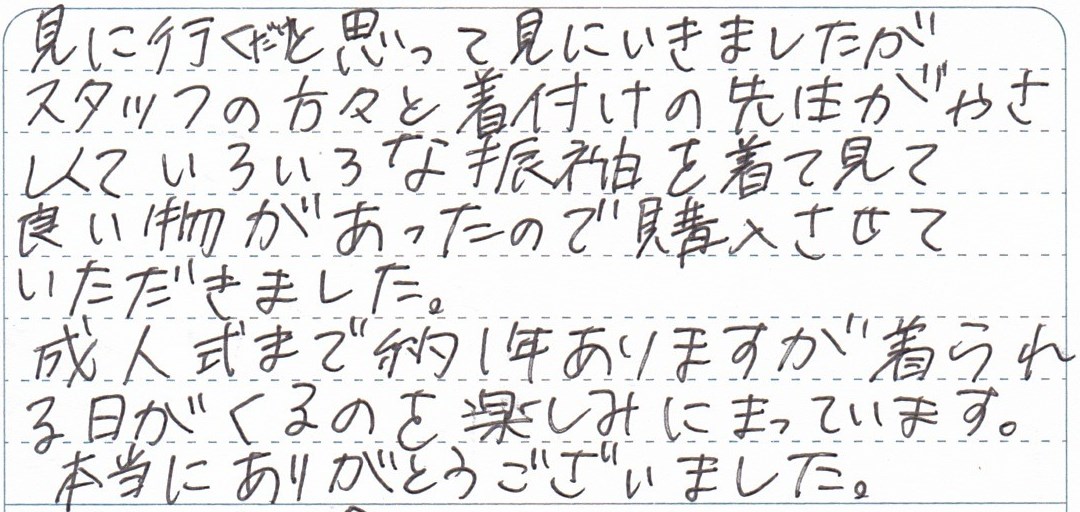 見に行くだと思って見にいきましたが
スタッフの方々と着付けの先生がやさ
しくていろいろな振袖を着て見て
良い物があったので購入させて
いただきました。
成人式まで約1年ありますが着られ
る日がくるのを楽しみにまっています。
本当にありがとうございました。